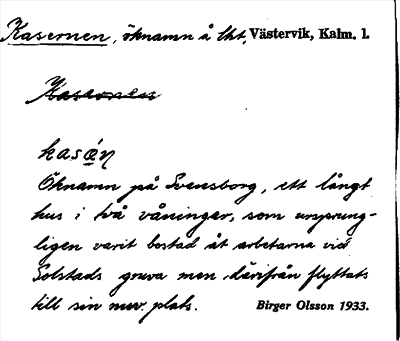 Kasernen, öknamn å lht, Västervik, Kalm. l.
Kasernen
kasä́ṇ
Öknamn på Svensborg, ett långt
hus i två våningar, som ursprung-
ligen varit bostad åt arbetarna vid
Solstads gruva men därifrån flyttats
till sin nuv. plats. Birger Olsson 1933.